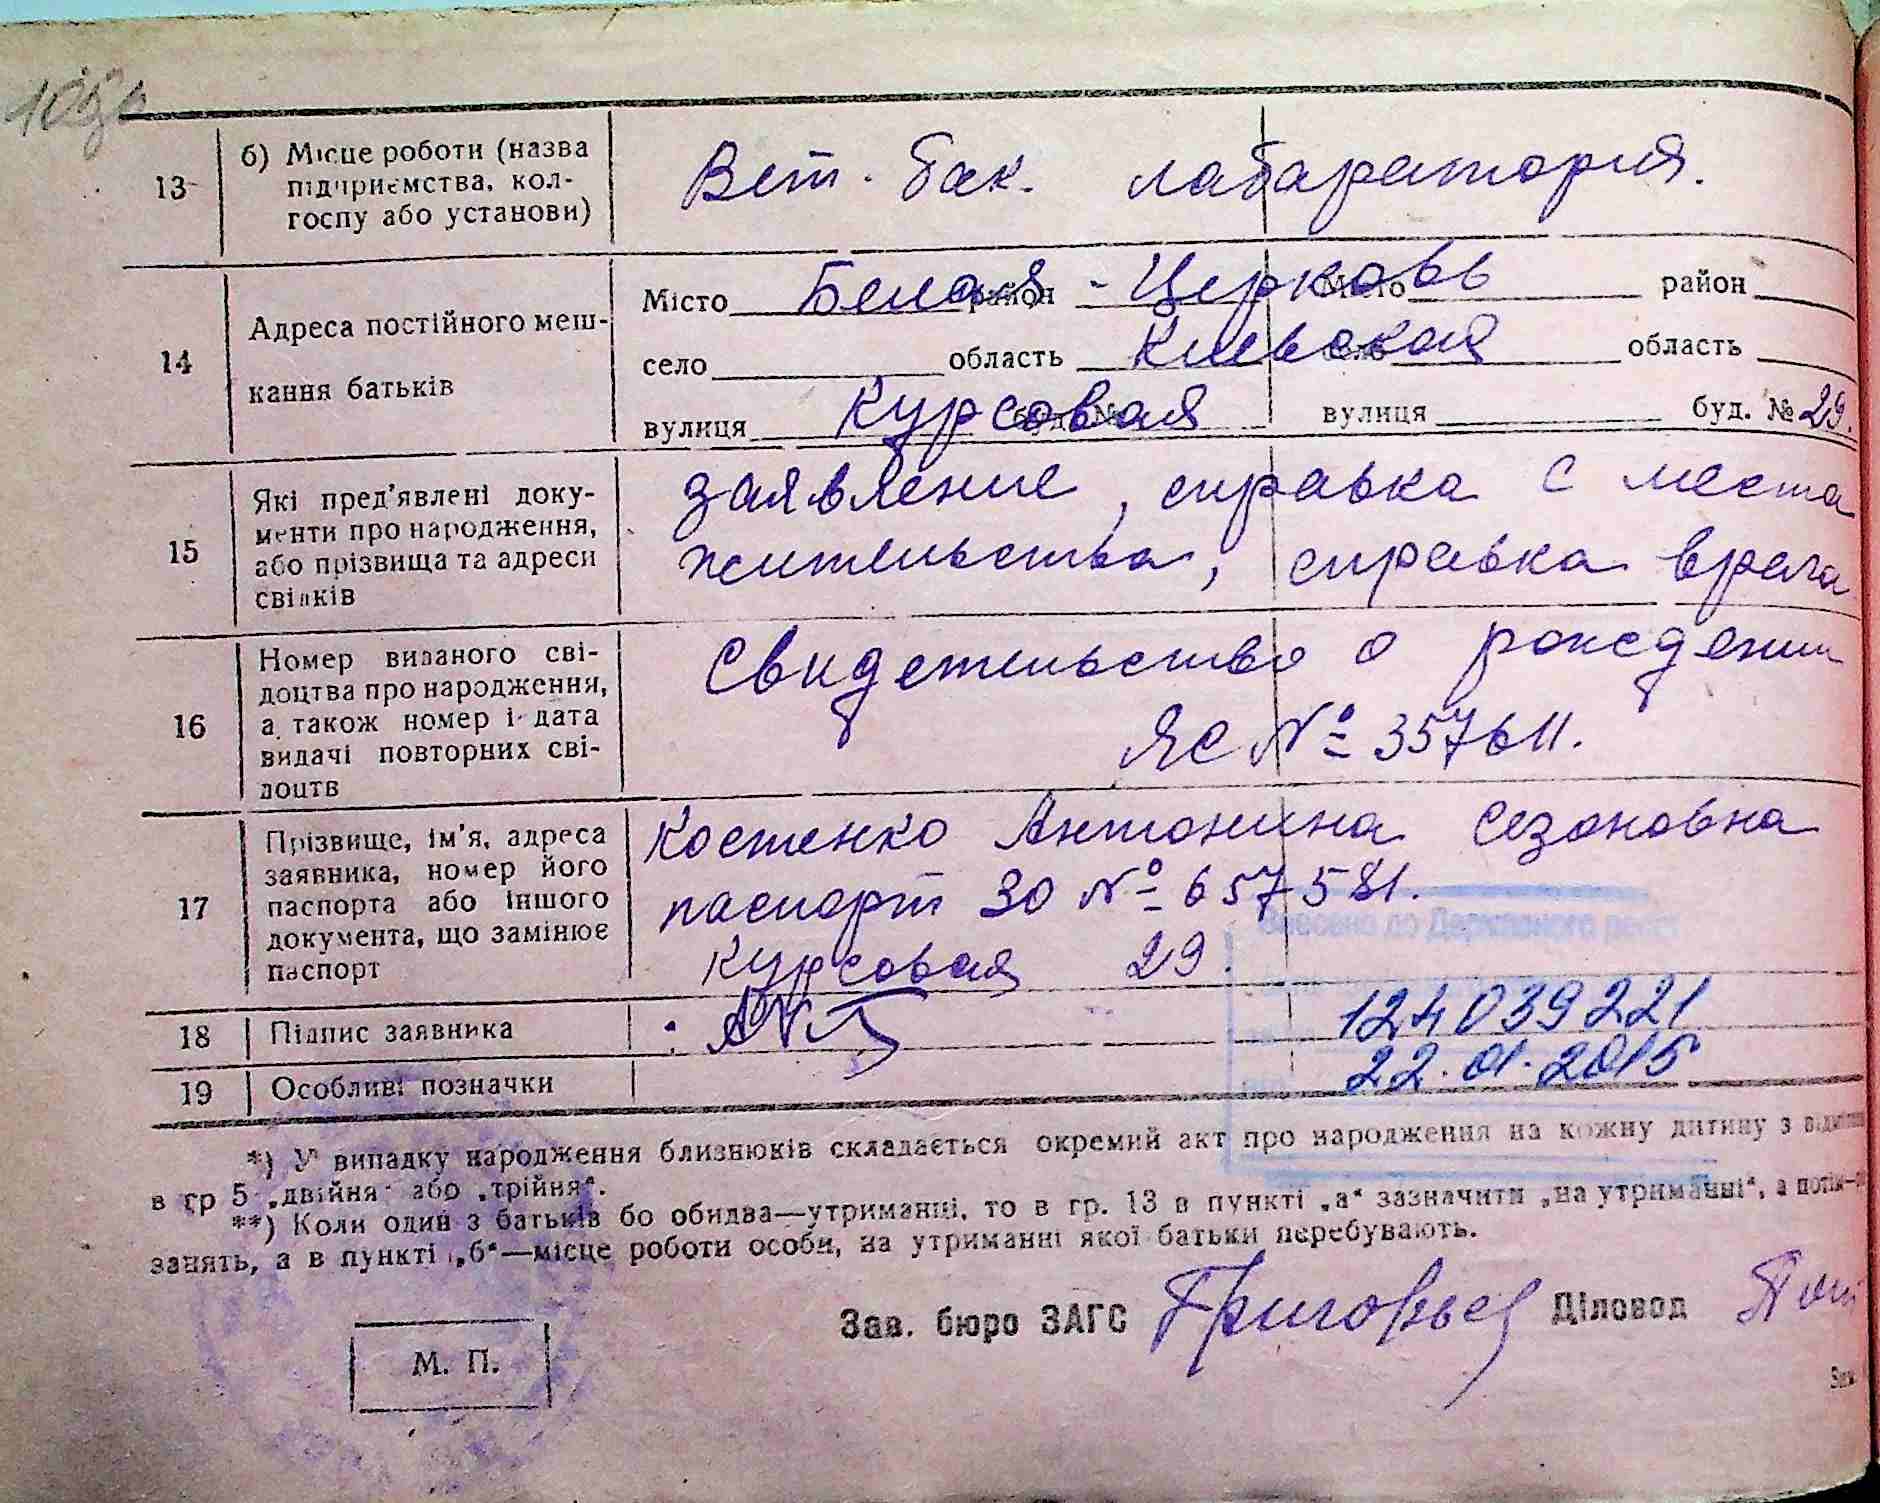 13 б) Місце роботи (назва
підприємства, кол-
госпу або установи)
Вет. бак. лабаратория.
14 Адреса постійного меш-
кання батьків
Місто Белая-Церковь район Місто район
село область Киевская село область
вулиця Курсовая буд. № вулиця буд. № 29.
15 Які пред'явлені доку-
менти про народження,
або прізвища та адреси
свідків
заявление, справка с места
жительства, справка врача
16 Номер виданого сві-
доцтва про народження,
а також номер і дата
видачі повторних сві-
доцтв
Свидетельство о рождении
ЯС № 357611.
17 Прізвище, ім'я, адреса
заявника, номер його
паспорта або іншого
документа, що замінює
паспорт
Костенко Антонина Сезоновна
паспорт 30 № 657581.
Курсовая 29.
Внесено до Державного реєст
18 Підпис заявника
124039221
19 Особливі позначки
22.01.2015
*) У випадку народження близнюків складається окремий акт про народження на кожну дитину з
в гр 5 „двійня" або „трійня".
**) Коли один з батьків бо обидва—утриманці, то в гр. 13 в пункті „а" зазначити „на утриманні", а
занять, а в пункті „б"—місце роботи особи, на утриманні якої батьки перебувають.
Зав. бюро ЗАГС Григорьев Діловод
М. П.